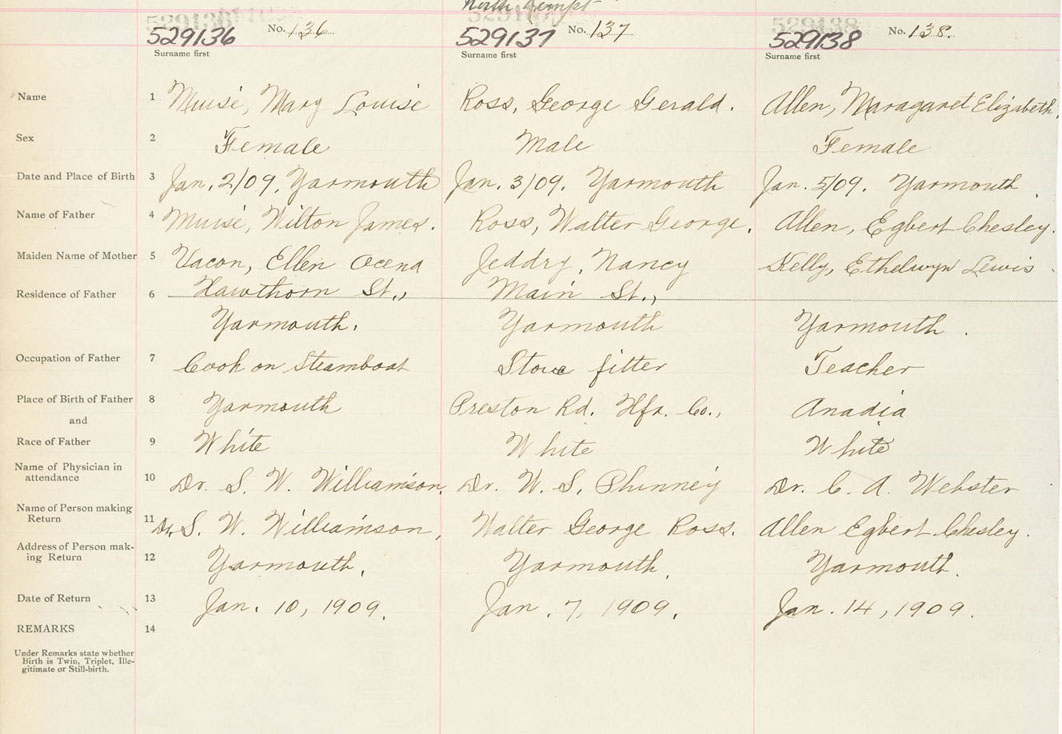 529136 No. 136 529137 No. 137 529138 No. 138.
Surname first Surname first Surname first
Name 1 Muise, Mary Louise Ross, George Gerald. Allen, Maragaret Elizabeth.
Sex 2 Female Male Female
Date and Place of Birth 3 Jan. 2/09. Yarmouth Jan. 3/09. Yarmouth Jan. 5/09. Yarmouth.
Name of Father 4 Muise, Wilton James. Ross, Walter George. Allen, Egbert Chesley.
Maiden Name of Mother 5 Vacon, Ellen Ocena Jeddry, Nancy Kelly, Ethelwyn Lewis
Residence of Father 6 Hawthorn St., Main St.,
Yarmouth. Yarmouth Yarmouth.
Occupation of Father 7 Cook on Steamboat Stove fitter Teacher
Place of Birth of Father 8 Yarmouth Preston Rd. Hfx. Co., Anadia
and
Race of Father 9 White White White
Name of Physician in
attendance 10 Dr. S. W. Williamson, Dr. W. S. Phinney Dr. C. A. Webster
Name of Person making
Return 11 Dr. S. W. Williamson, Walter George Ross. Allen Egbert Chesley.
Address of Person mak-
ing Return 12 Yarmouth. Yarmouth. Yarmouth.
Date of Return 13 Jan. 10, 1909. Jan. 7, 1909. Jan. 14, 1909.
REMARKS 14
Under Remarks state whether
Birth is Twin, Triplet, Ille-
gitimate or Still-birth.